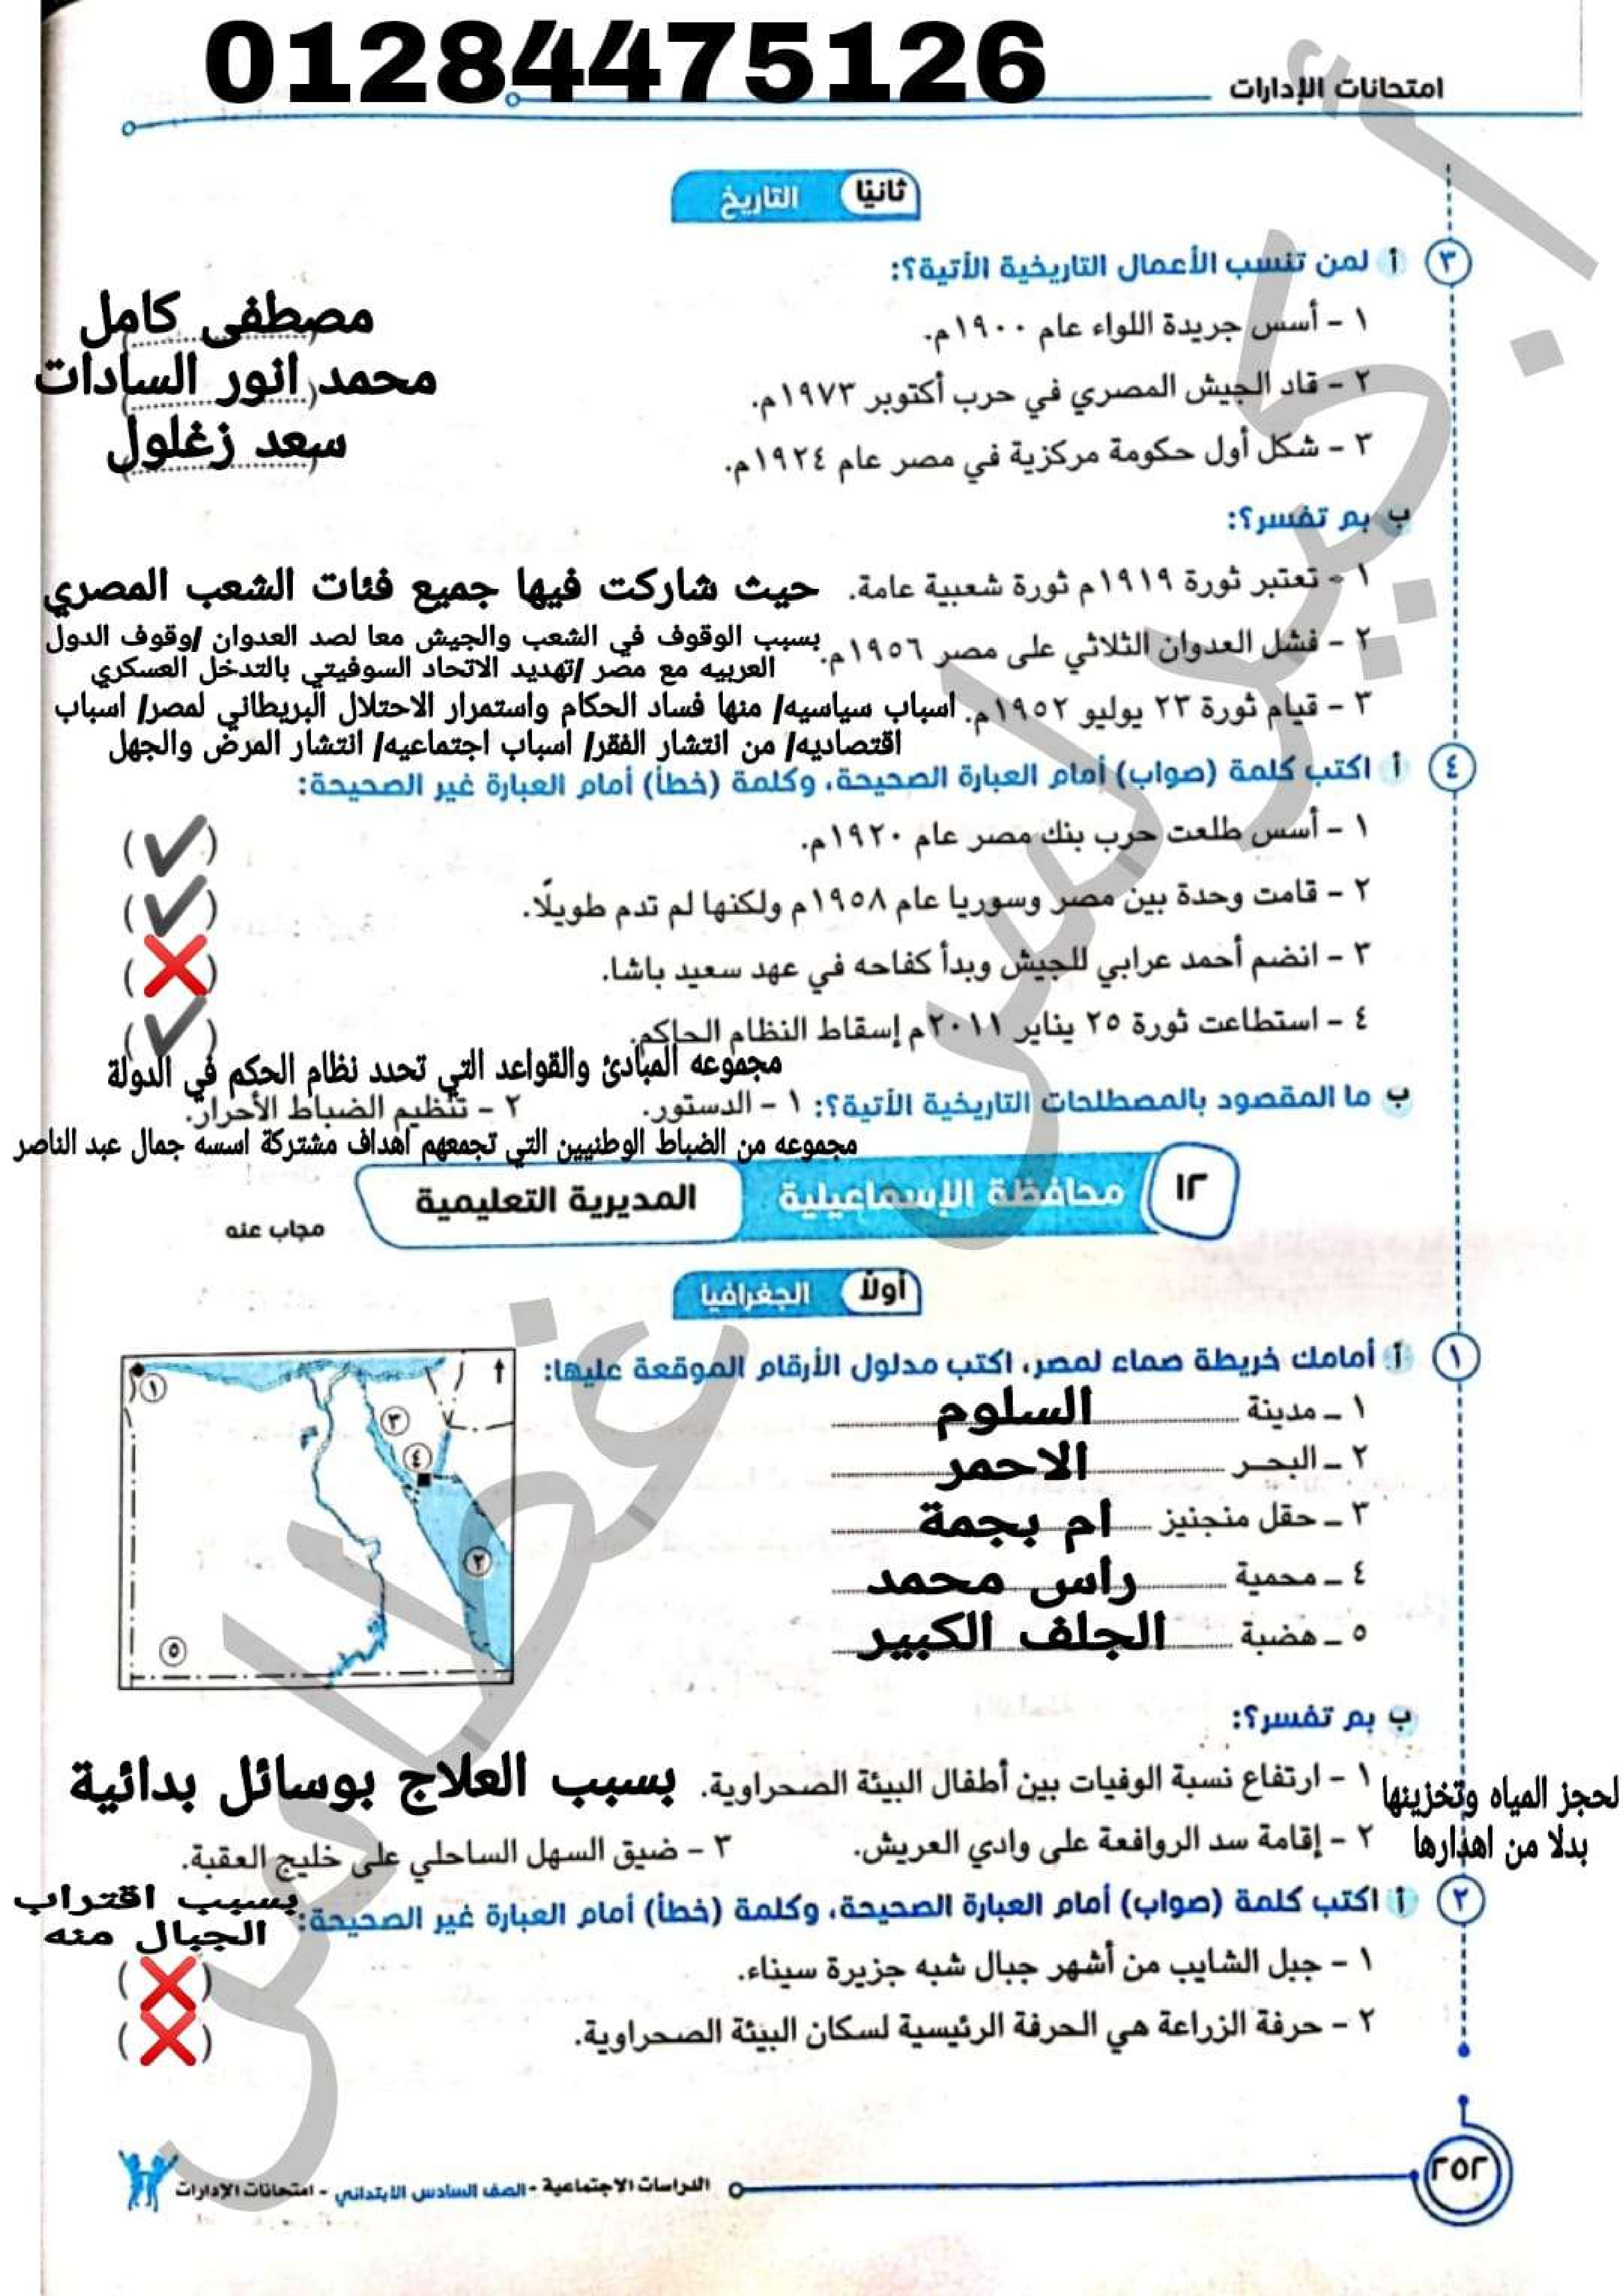 01284475126
امتحانات الإدارات
ثانيًا التاريخ
٣ أ لمن تنسب الأعمال التاريخية الأتية؟:
١ - أسس جريدة اللواء عام ١٩٠٠م. (مصطفى كامل)
٢ - قاد الجيش المصري في حرب أكتوبر ١٩٧٣م. (محمد انور السادات)
٣ - شكل أول حكومة مركزية في مصر عام ١٩٢٤م. (سعد زغلول)
ب بم تفسر؟:
١ - تعتبر ثورة ١٩١٩م ثورة شعبية عامة. حيث شاركت فيها جميع فئات الشعب المصري
٢ - فشل العدوان الثلاثي على مصر ١٩٥٦م. بسبب الوقوف في الشعب والجيش معا لصد العدوان /وقوف الدول
العربيه مع مصر /تهديد الاتحاد السوفيتي بالتدخل العسكري
٣ - قيام ثورة ٢٣ يوليو ١٩٥٢م. اسباب سياسيه/ منها فساد الحكام واستمرار الاحتلال البريطاني لمصر/ اسباب
اقتصاديه/ من انتشار الفقر/ اسباب اجتماعيه/ انتشار المرض والجهل
٤ أ اكتب كلمة (صواب) أمام العبارة الصحيحة، وكلمة (خطأ) أمام العبارة غير الصحيحة:
١ - أسس طلعت حرب بنك مصر عام ١٩٢٠م. (✔)
٢ - قامت وحدة بين مصر وسوريا عام ١٩٥٨م ولكنها لم تدم طويلًا. (✔)
٣ - انضم أحمد عرابي للجيش وبدأ كفاحه في عهد سعيد باشا. (❌)
٤ - استطاعت ثورة ٢٥ يناير ٢٠١١م إسقاط النظام الحاكم. (✔)
مجموعه المبادئ والقواعد التي تحدد نظام الحكم في الدولة
ب ما المقصود بالمصطلحات التاريخية الأتية؟: ١ - الدستور. ٢ - تنظيم الضباط الأحرار.
مجموعه من الضباط الوطنيين التي تجمعهم اهداف مشتركة اسسه جمال عبد الناصر
١٢ محافظة الإسماعيلية المديرية التعليمية مجاب عنه
أولًا الجغرافيا
١ أ أمامك خريطة صماء لمصر، اكتب مدلول الأرقام الموقعة عليها:
١ ـ مدينة السلوم
٢ ـ البحـر الاحمر
٣ ـ حقل منجنيز ام بجمة
٤ ـ محمية راس محمد
٥ ـ هضبة الجلف الكبير
١
٣
٤
٢
٥
ب بم تفسر؟:
١ - ارتفاع نسبة الوفيات بين أطفال البيئة الصحراوية. بسبب العلاج بوسائل بدائية
لحجز المياه وتخزينها
بدلا من اهذارها
٢ - إقامة سد الروافعة على وادي العريش. ٣ - ضيق السهل الساحلي على خليج العقبة.
بسبب اقتراب
الجبال منه
٢ أ اكتب كلمة (صواب) أمام العبارة الصحيحة، وكلمة (خطأ) أمام العبارة غير الصحيحة:
١ - جبل الشايب من أشهر جبال شبه جزيرة سيناء. (❌)
٢ - حرفة الزراعة هي الحرفة الرئيسية لسكان البيئة الصحراوية. (❌)
٢٥٢
الدراسات الاجتماعية - الصف السادس الابتدائي - امتحانات الإدارات
أ. كيرلس غطاس